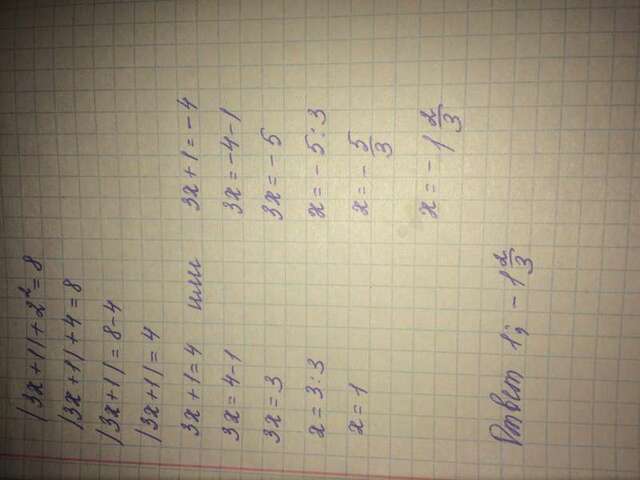 |3x+1|+2²=8
|3x+1|+4=8
|3x+1|=8-4
|3x+1|=4
3x+1=4 или 3x+1=-4
3x=4-1 3x=-4-1
3x=3 3x=-5
x=3:3 x=-5:3
x=1 x=-5/3
x=-1 2/3
Ответ 1; -1 2/3